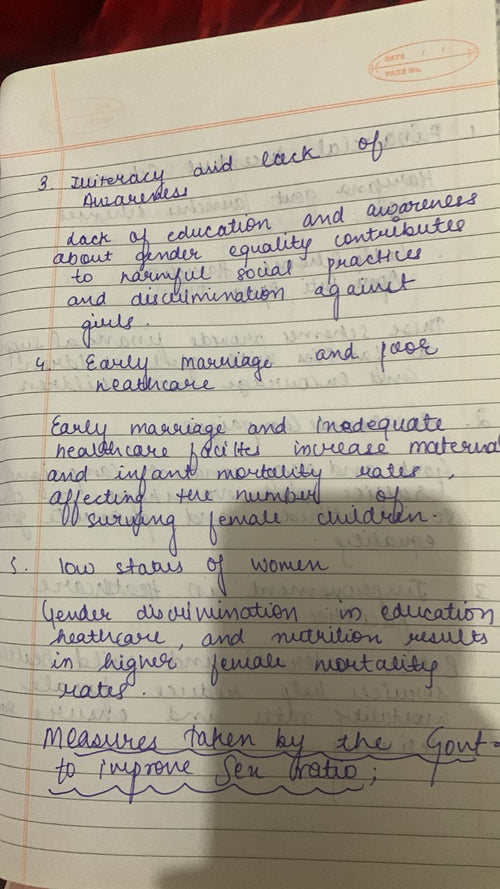 DATE / /
PAGE No.
3. Illiteracy and lack of
Awareness
Lack of education and awareness
about gender equality contributes
to harmful social practices
and discrimination against
girls.
4. Early marriage and poor
heathcare
Early marriage and Inadequate
healthcare facilites increase maternal
and infant mortality rates,
affecting the number of
surving female children.
5. low status of women
Gender discrimination in education
heathcare, and nutrition results
in higher female mortality
rates.
Measures taken by the Govt-
to improve Sex Ratio;